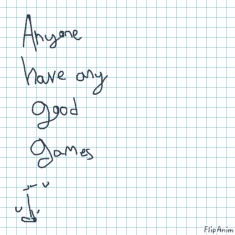 Anyone
have any
good
games
FlipAnim